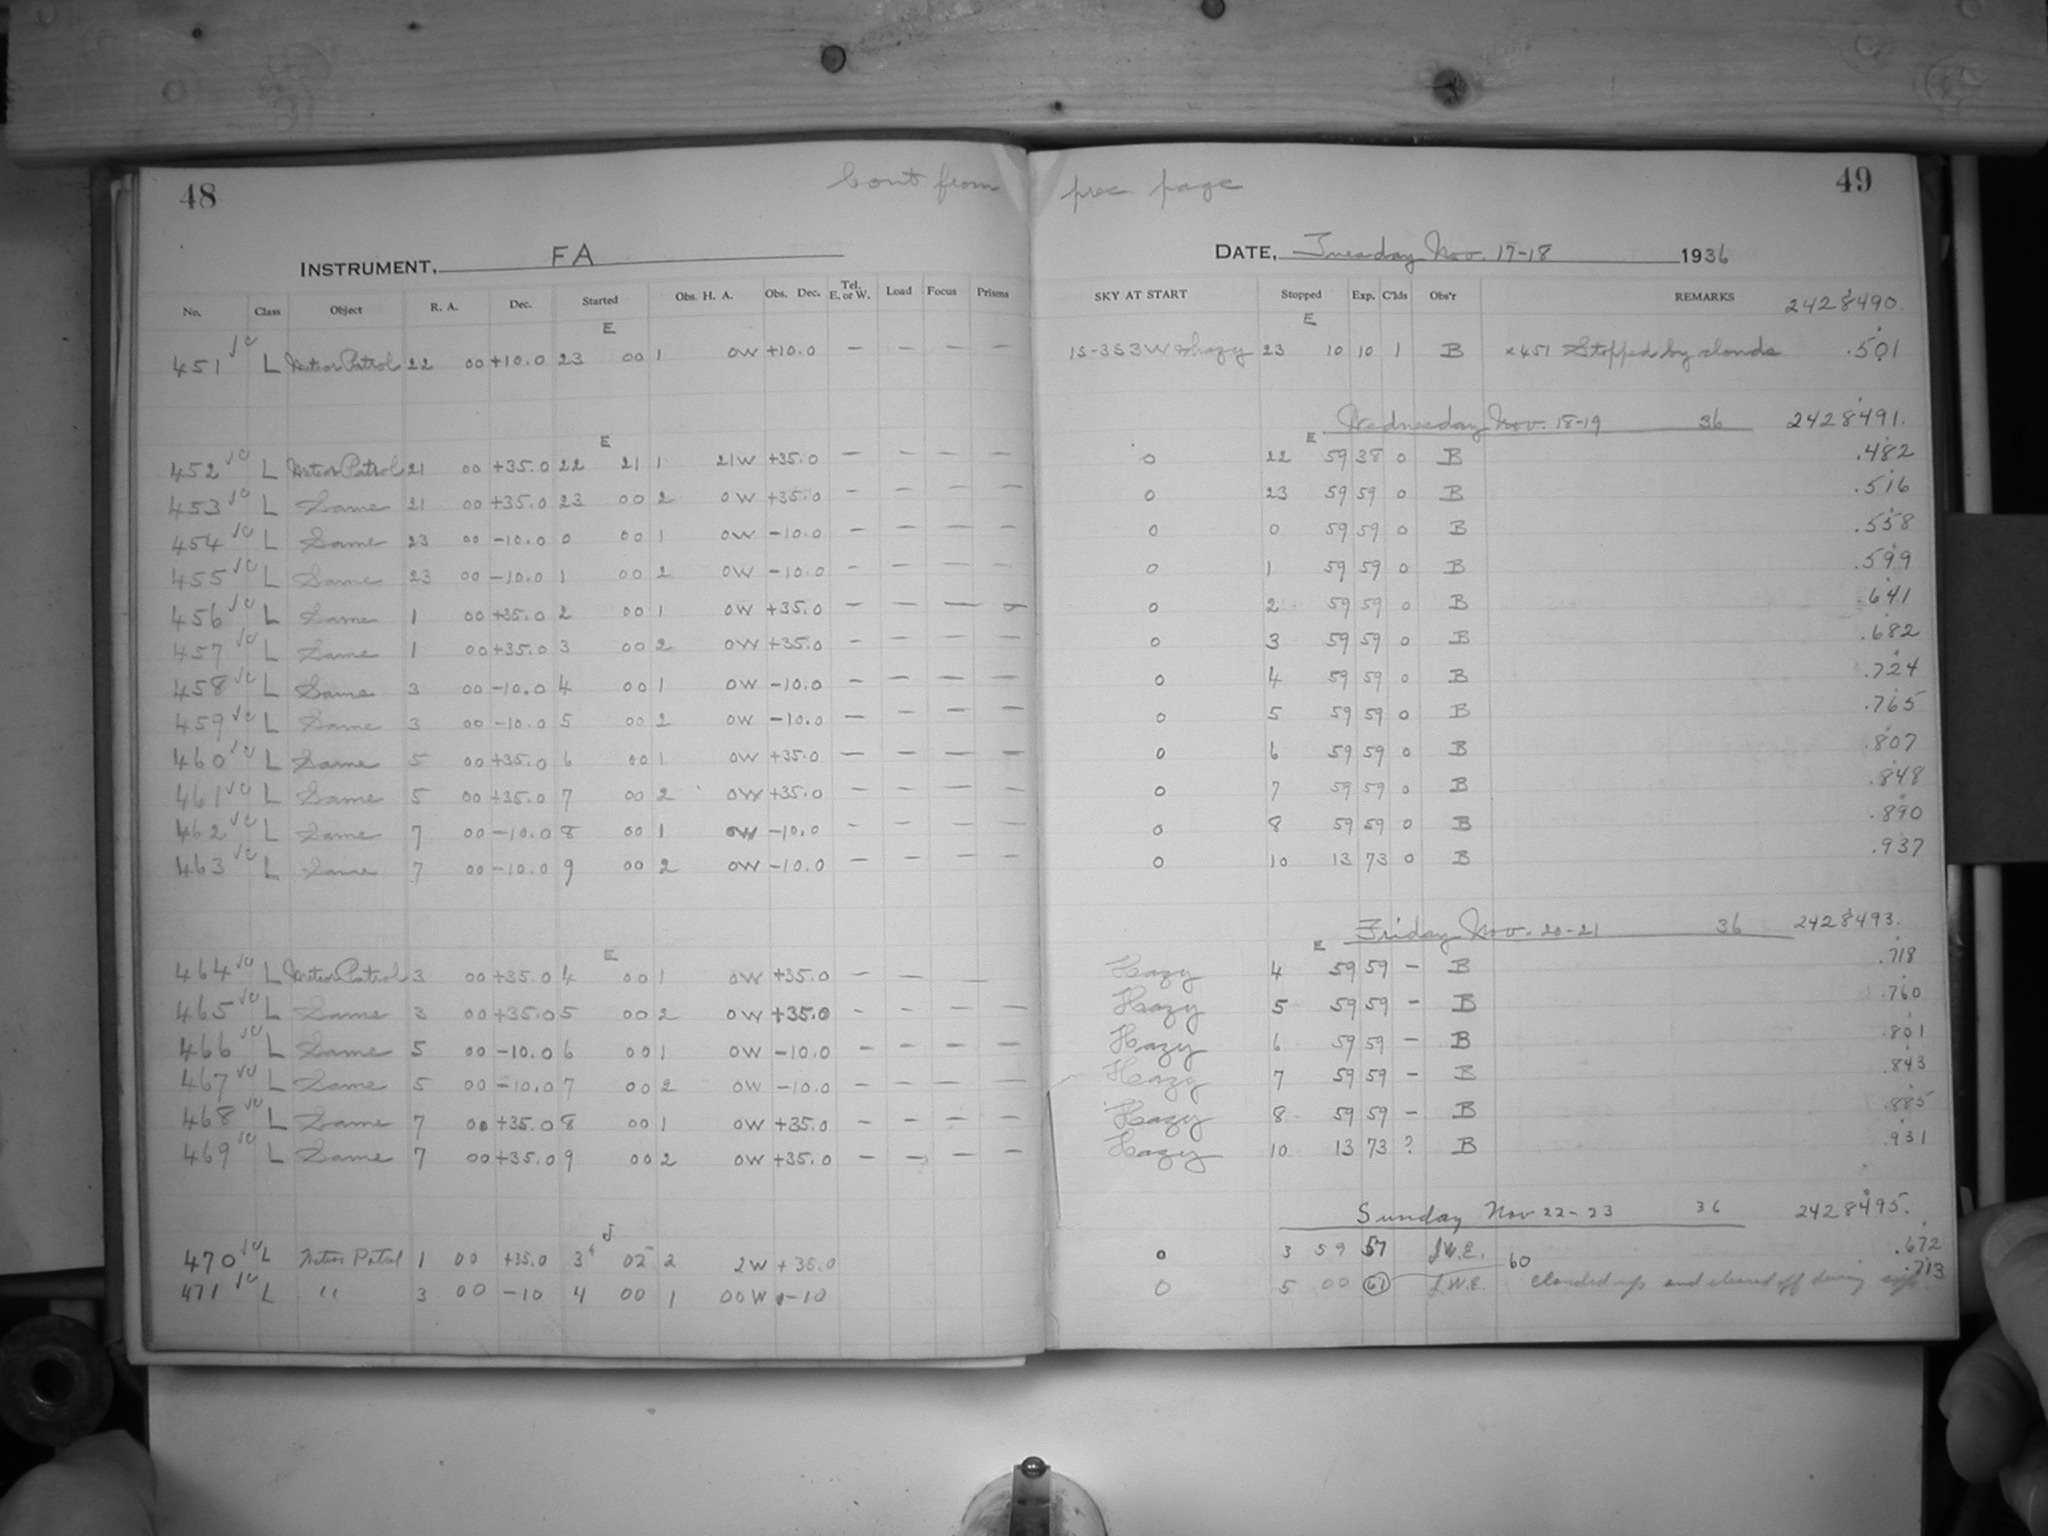 48
Cont from prec. page
49
INSTRUMENT, FA
DATE, Tuesday Nov. 17-18 1936
No. Class Object R. A. Dec. Started Obs. H. A. Obs. Dec. Tel. E. or W. Load Focus Prisms SKY AT START Stopped Exp. C'lds Obs'r REMARKS 2428490.
E E
451 L Meteor Patrol 22 00 +10.0 23 00 1 0W +10.0 — — — — 1S-3S3W hazy 23 10 10 1 B x451 Stopped by clouds .501
Wednesday Nov. 18-19 36 2428491.
E E
452 L Meteor Patrol 21 00 +35.0 22 21 1 21W +35.0 — — — — 0 22 59 38 0 B .482
453 L Same 21 00 +35.0 23 00 2 0W +35.0 — — — — 0 23 59 59 0 B .516
454 L Same 23 00 -10.0 0 00 1 0W -10.0 — — — — 0 0 59 59 0 B .558
455 L Same 23 00 -10.0 1 00 2 0W -10.0 — — — — 0 1 59 59 0 B .599
456 L Same 1 00 +35.0 2 00 1 0W +35.0 — — — — 0 2 59 59 0 B .641
457 L Same 1 00 +35.0 3 00 2 0W +35.0 — — — — 0 3 59 59 0 B .682
458 L Same 3 00 -10.0 4 00 1 0W -10.0 — — — — 0 4 59 59 0 B .724
459 L Same 3 00 -10.0 5 00 2 0W -10.0 — — — — 0 5 59 59 0 B .765
460 L Same 5 00 +35.0 6 00 1 0W +35.0 — — — — 0 6 59 59 0 B .807
461 L Same 5 00 +35.0 7 00 2 0W +35.0 — — — — 0 7 59 59 0 B .848
462 L Same 7 00 -10.0 8 00 1 0W -10.0 — — — — 0 8 59 59 0 B .890
463 L Same 7 00 -10.0 9 00 2 0W -10.0 — — — — 0 10 13 73 0 B .937
Friday Nov. 20-21 36 2428493.
E E
464 L Meteor Patrol 3 00 +35.0 4 00 1 0W +35.0 — — — Hazy 4 59 59 — B .718
465 L Same 3 00 +35.0 5 00 2 0W +35.0 — — — — Hazy 5 59 59 — B .760
466 L Same 5 00 -10.0 6 00 1 0W -10.0 — — — — Hazy 6 59 59 — B .801
467 L Same 5 00 -10.0 7 00 2 0W -10.0 — — — — Hazy 7 59 59 — B .843
468 L Same 7 00 +35.0 8 00 1 0W +35.0 — — — — Hazy 8 59 59 — B .885
469 L Same 7 00 +35.0 9 00 2 0W +35.0 — — — — Hazy 10 13 73 ? B .931
Sunday Nov 22-23 36 2428495.
470 L Meteor Patrol 1 00 +35.0 3 02 2 2W +35.0 0 3 59 57 J.W.E. .672
60
471 L " 3 00 -10 4 00 1 00W -10 0 5 00 61 J.W.E. clouded up and cleared off during exp. .713